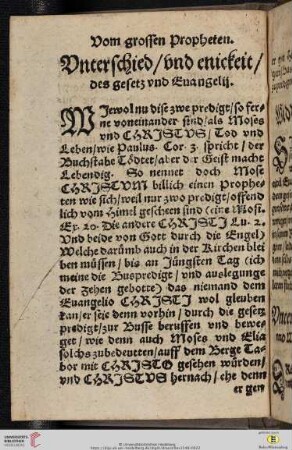 Vom grossen Propheten.
Vnterschied/vnd enickeit/
des gesetz vnd Euangelij.
WJewol nu dise zwe predigt/so fer-
ne voneinander sind/als Moses
vnd CHRISTVS/Tod vnd
Leben/wie Paulus. Cor. 3. spricht/der
Buchstabe Tödtet/aber der Geist macht
Lebendig. So nennet doch Mose
CHRISTVM billich einen Prophe-
ten wie sich/weil nur zwo predigt/offend
lich vom Himel gescheen sind (eine Mosi.
Ex. 20. Die andere CHRISTJ Lu. 2.
Vnd beide von Gott durch die Engel)
Welche darumb auch in der Kirchen blei
ben müssen/bis an Jüngsten Tag (ich
meine die Buspredigt/vnd auslegunge
der Zehen gebotte) das niemand dem
Euangelio CHRISTJ wol gleuben
kan/er seie denn vorhin/durch die gesetz
predigt/zur Busse beruffen vnd bewe-
get/wie denn auch Moses vnd Elia
solchs zubedeutten/auff dem Berge Ta-
bor mit CHRISTO gesehen würden/
vnd CHRISTVS hernach/ehe denn
er gen
UNIVERSITÄTS-
BIBLIOTHEK
HEIDELBERG
© Universitätsbibliothek Heidelberg